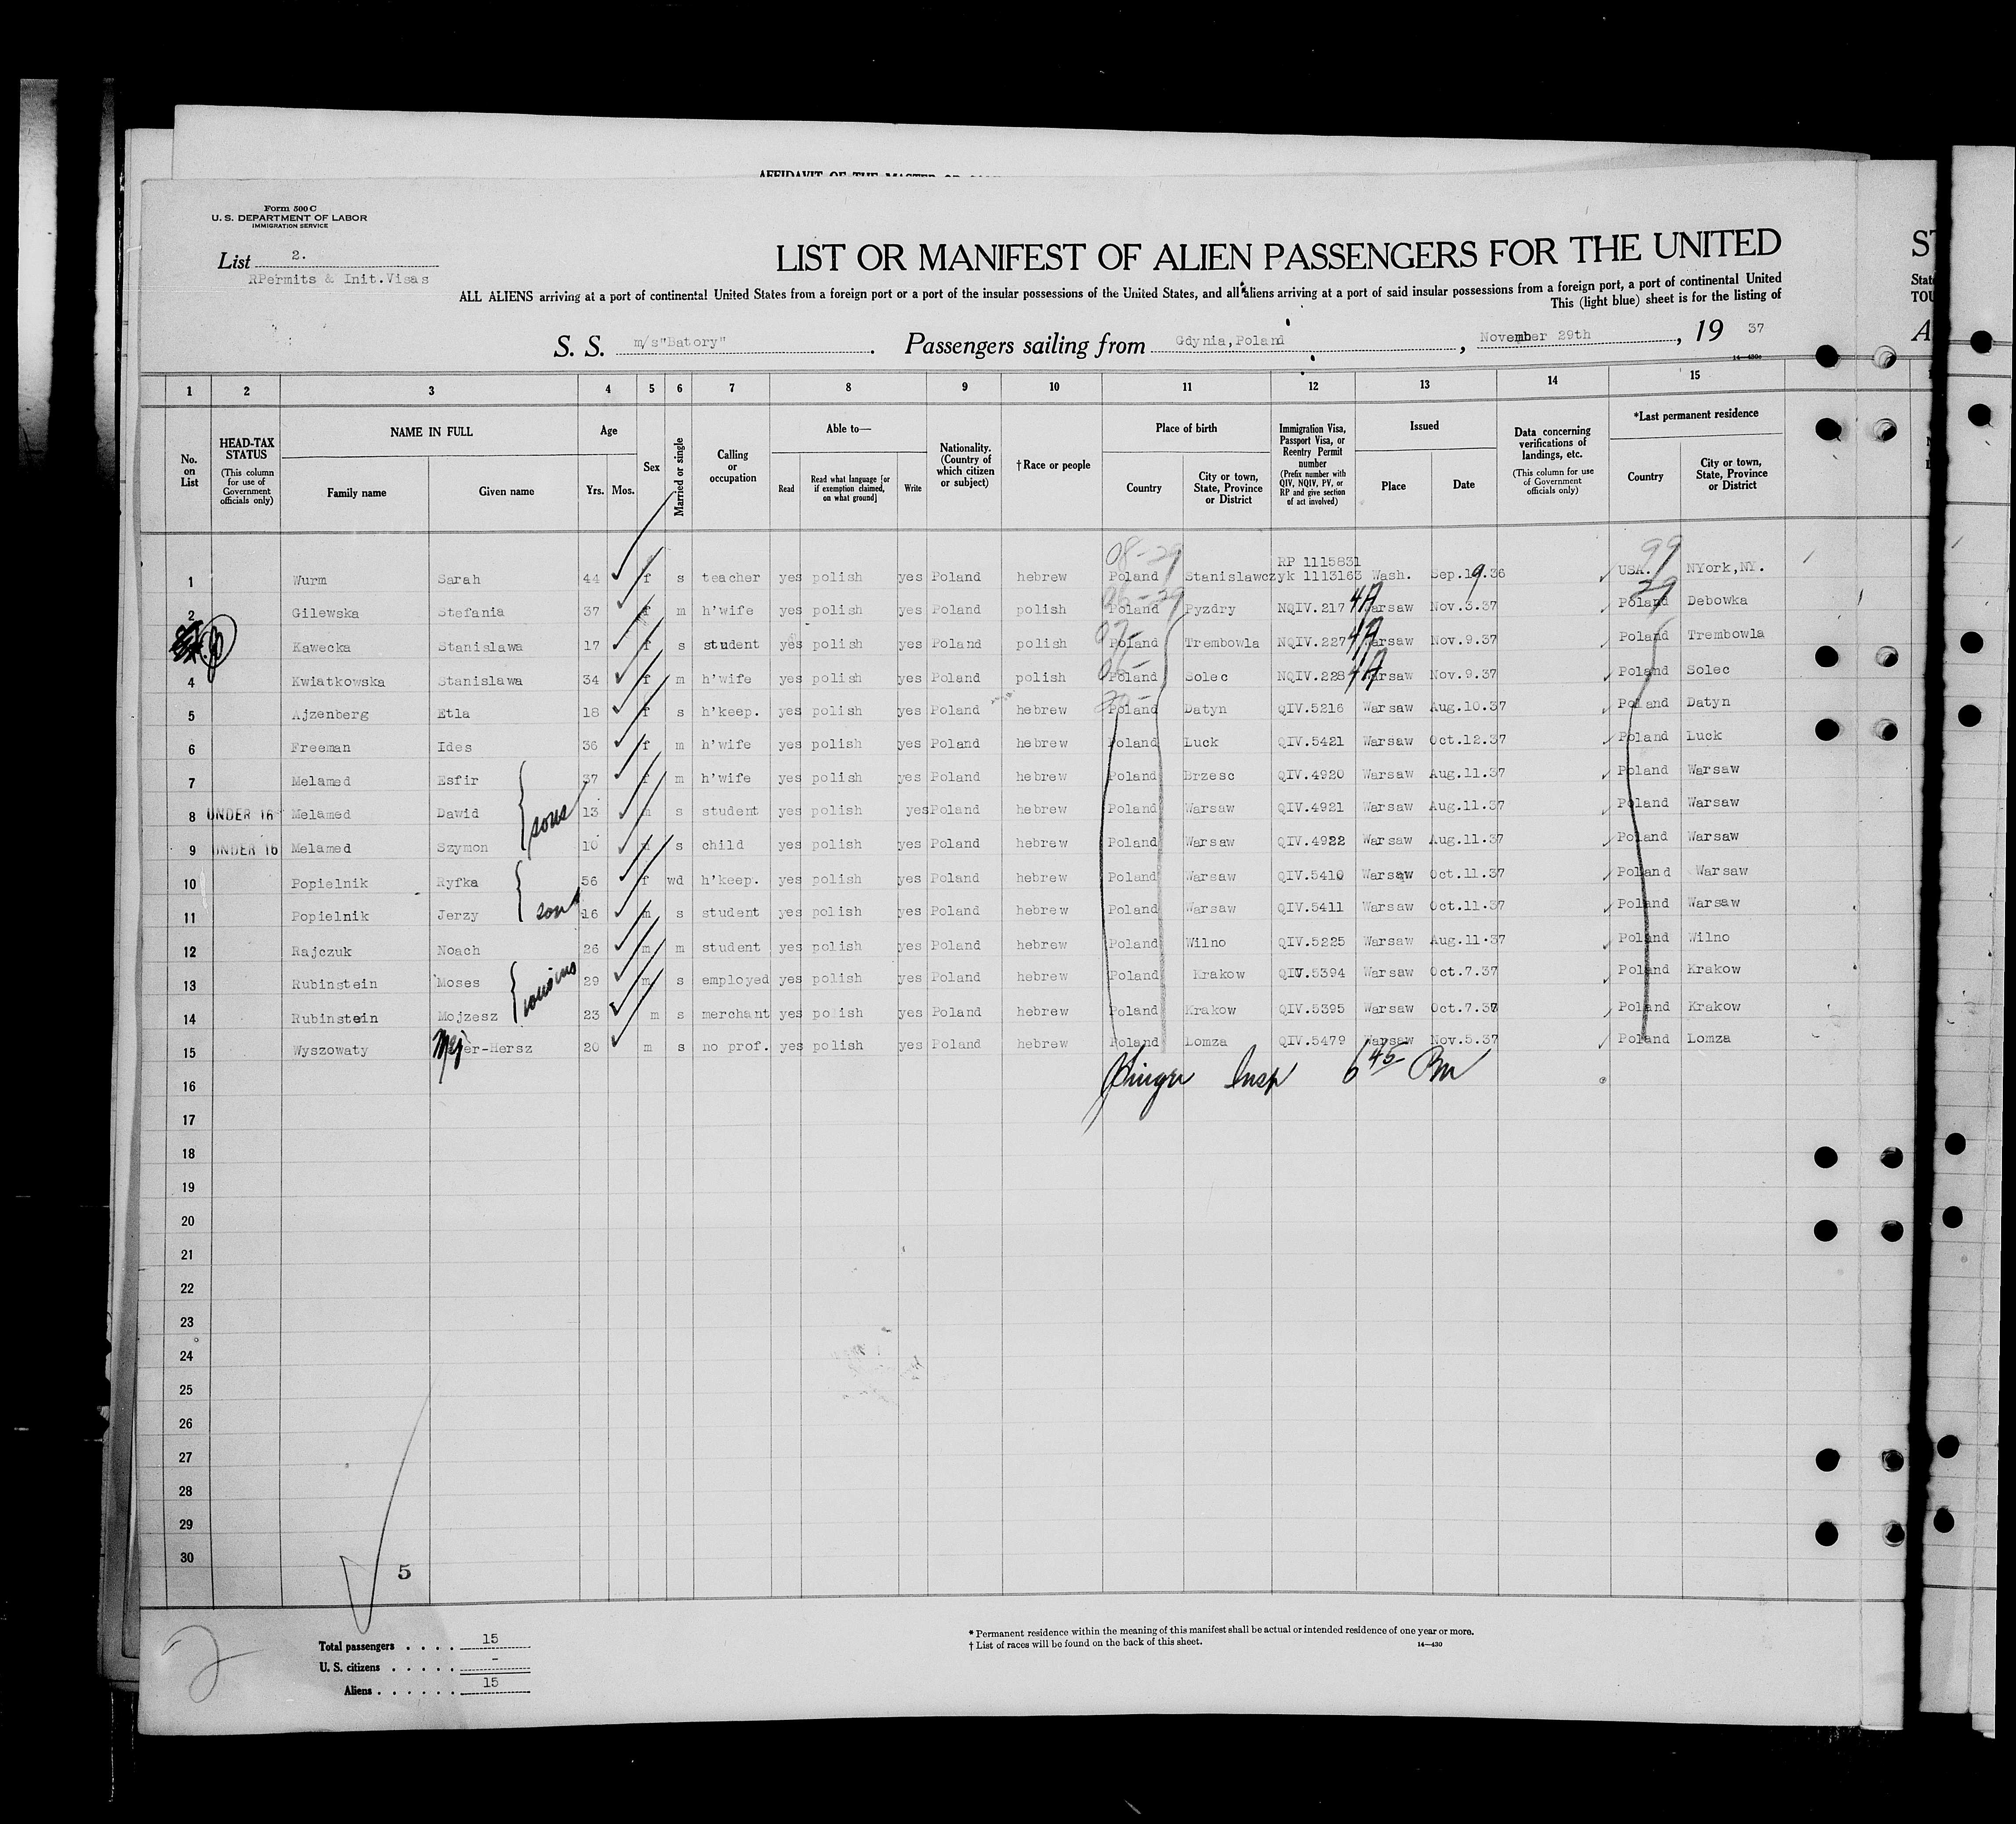 AFFIDAVIT OF THE MASTER OR
Form 500 C
U. S. DEPARTMENT OF LABOR
IMMIGRATION SERVICE
List 2.
RPermits & Init.Visas
LIST OR MANIFEST OF ALIEN PASSENGERS FOR THE UNITED
ALL ALIENS arriving at a port of continental United States from a foreign port or a port of the insular possessions of the United States, and all aliens arriving at a port of said insular possessions from a foreign port, a port of continental United
This (light blue) sheet is for the listing of
S. S. m/s"Batory". Passengers sailing from Gdynia,Poland, November 29th, 19 37
14—430c
1 2 3 4 5 6 7 8 9 10 11 12 13 14 15
No. on List
HEAD-TAX STATUS (This column for use of Government officials only)
NAME IN FULL
Family name
Given name
Age
Yrs. Mos.
Sex
Married or single
Calling or occupation
Able to—
Read
Read what language [or if exemption claimed, on what ground]
Write
Nationality. (Country of which citizen or subject)
†Race or people
Place of birth
Country
City or town, State, Province or District
Immigration Visa, Passport Visa, or Reentry Permit number (Prefix number with QIV, NQIV, PV, or RP and give section of act involved)
Issued
Place
Date
Data concerning verifications of landings, etc. (This column for use of Government officials only)
*Last permanent residence
Country
City or town, State, Province or District
08-29 RP 1115831 99
1 Wurm Sarah 44 f s teacher yes polish yes Poland hebrew Poland Stanislawczyk 1113163 Wash. Sep.19.36 USA. NYork,NY.
06-29 29
2 Gilewska Stefania 37 f m h'wife yes polish yes Poland polish Poland Pyzdry NQIV.217 4A Warsaw Nov.3.37 Poland Debowka
Kawecka Stanislawa 17 f s student yes polish yes Poland polish Poland Trembowla NQIV.227 4A Warsaw Nov.9.37 Poland Trembowla
4 Kwiatkowska Stanislawa 34 f m h'wife yes polish yes Poland polish Poland Solec NQIV.228 4A Warsaw Nov.9.37 Poland Solec
5 Ajzenberg Etla 18 f s h'keep. yes polish yes Poland hebrew Poland Datyn QIV.5216 Warsaw Aug.10.37 Poland Datyn
6 Freeman Ides 36 f m h'wife yes polish yes Poland hebrew Poland Luck QIV.5421 Warsaw Oct.12.37 Poland Luck
7 Melamed Esfir 37 f m h'wife yes polish yes Poland hebrew Poland Brzesc QIV.4920 Warsaw Aug.11.37 Poland Warsaw
8 UNDER 16 Melamed Dawid sons 13 m s student yes polish yes Poland hebrew Poland Warsaw QIV.4921 Warsaw Aug.11.37 Poland Warsaw
9 UNDER 16 Melamed Szymon 10 m s child yes polish yes Poland hebrew Poland Warsaw QIV.4922 Warsaw Aug.11.37 Poland Warsaw
10 Popielnik Ryfka 56 f wd h'keep. yes polish yes Poland hebrew Poland Warsaw QIV.5410 Warsaw Oct.11.37 Poland Warsaw
11 Popielnik Jerzy son 16 m s student yes polish yes Poland hebrew Poland Warsaw QIV.5411 Warsaw Oct.11.37 Poland Warsaw
12 Rajczuk Noach 26 m m student yes polish yes Poland hebrew Poland Wilno QIV.5225 Warsaw Aug.11.37 Poland Wilno
13 Rubinstein Moses cousins 29 m s employed yes polish yes Poland hebrew Poland Krakow QIV.5394 Warsaw Oct.7.37 Poland Krakow
14 Rubinstein Mojzesz 23 m s merchant yes polish yes Poland hebrew Poland Krakow QIV.5395 Warsaw Oct.7.37 Poland Krakow
15 Wyszowaty Mejer-Hersz 20 m s no prof. yes polish yes Poland hebrew Poland Lomza QIV.5479 Warsaw Nov.5.37 Poland Lomza
16 Insp 6 45 Pm
17
18
19
20
21
22
23
24
25
26
27
28
29
30
5
2
Total passengers . . . . 15
U. S. citizens . . . . . -
Aliens . . . . . . 15
* Permanent residence within the meaning of this manifest shall be actual or intended residence of one year or more.
† List of races will be found on the back of this sheet.
14—430